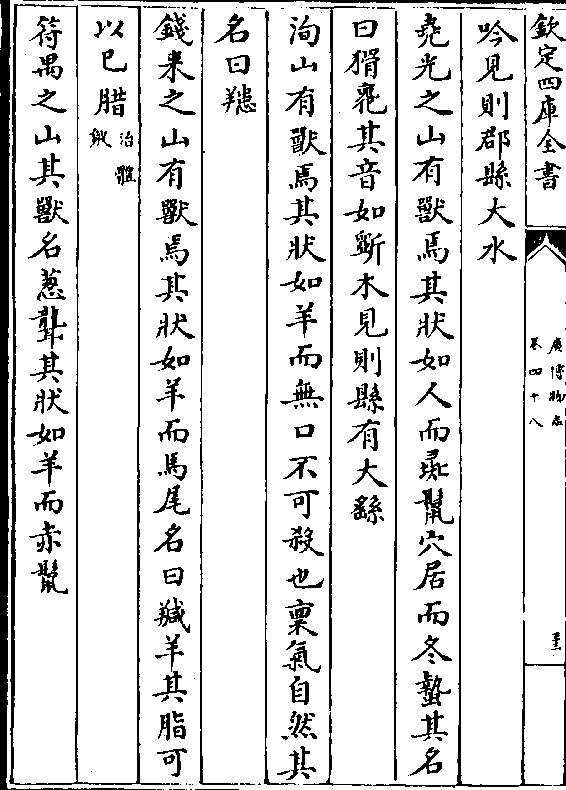 欽定四庫全書
廣博物志
卷四十八
吟見則郡縣大水
堯光之山有獸焉其狀如人而彘鬣穴居而冬蟄其名
曰猾褢其音如斲木見則縣有大繇
洵山有獸焉其狀如羊而無口不可殺也稟氣自然其
名曰䍺
錢來之山有獸焉其狀如羊而馬尾名曰羬羊其脂可
以已腊治體皴
符禺之山其獸名葱聾其狀如羊而赤鬣